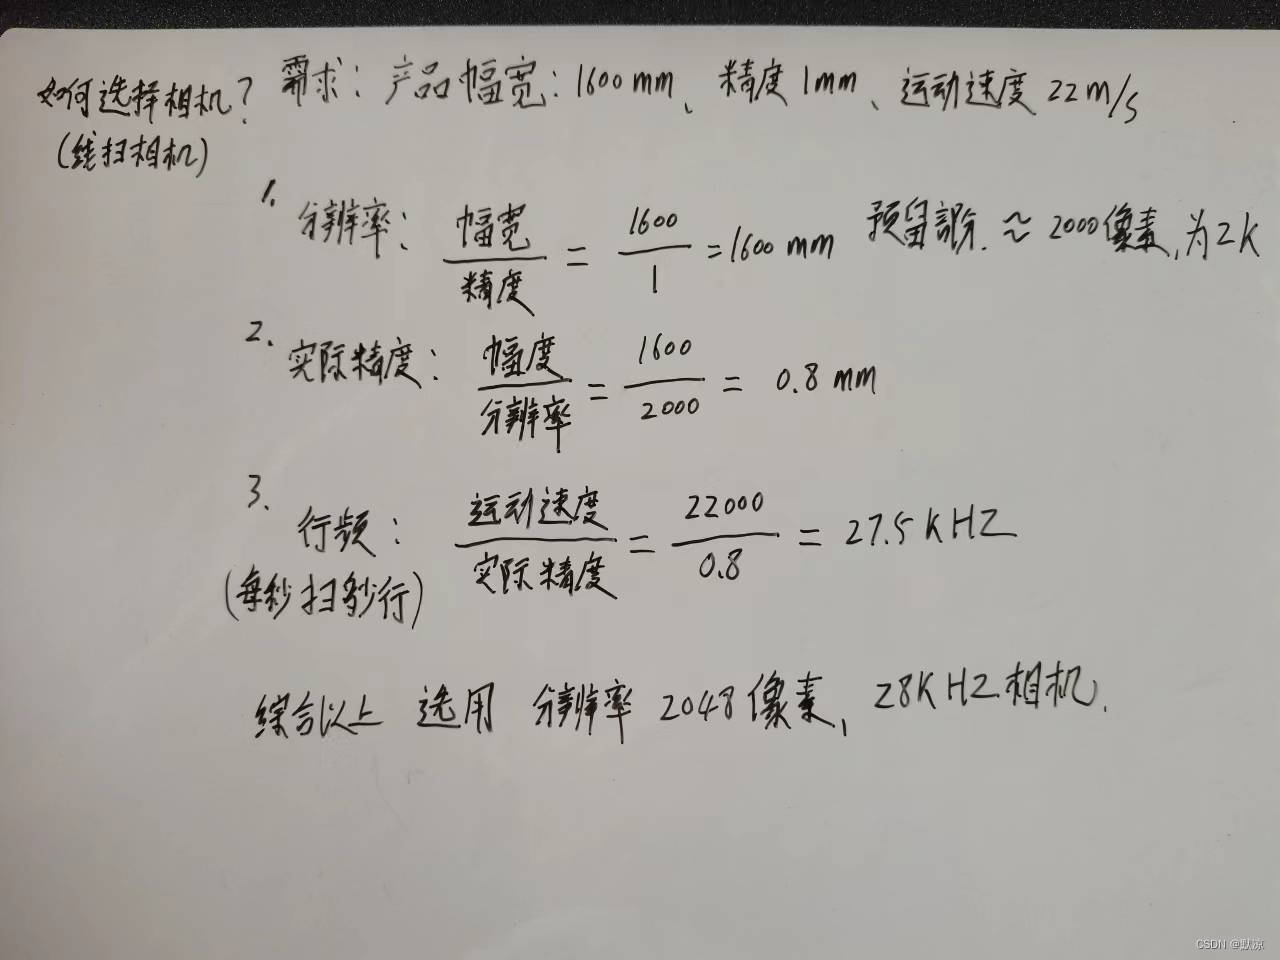 如何选择相机? 需求: 产品幅宽: 1600mm、精度1mm、运动速度22m/s
(线扫相机)
1. 分辨率: 幅宽/精度 = 1600/1 = 1600mm 预留部分. ≈ 2000像素,为2K
2. 实际精度: 幅度/分辨率 = 1600/2000 = 0.8mm
3. 行频: 运动速度/实际精度 = 22000/0.8 = 27.5KHZ
(每秒扫多少行)
综合以上 选用 分辨率 2048像素、28KHZ相机.
CSDN @默凉